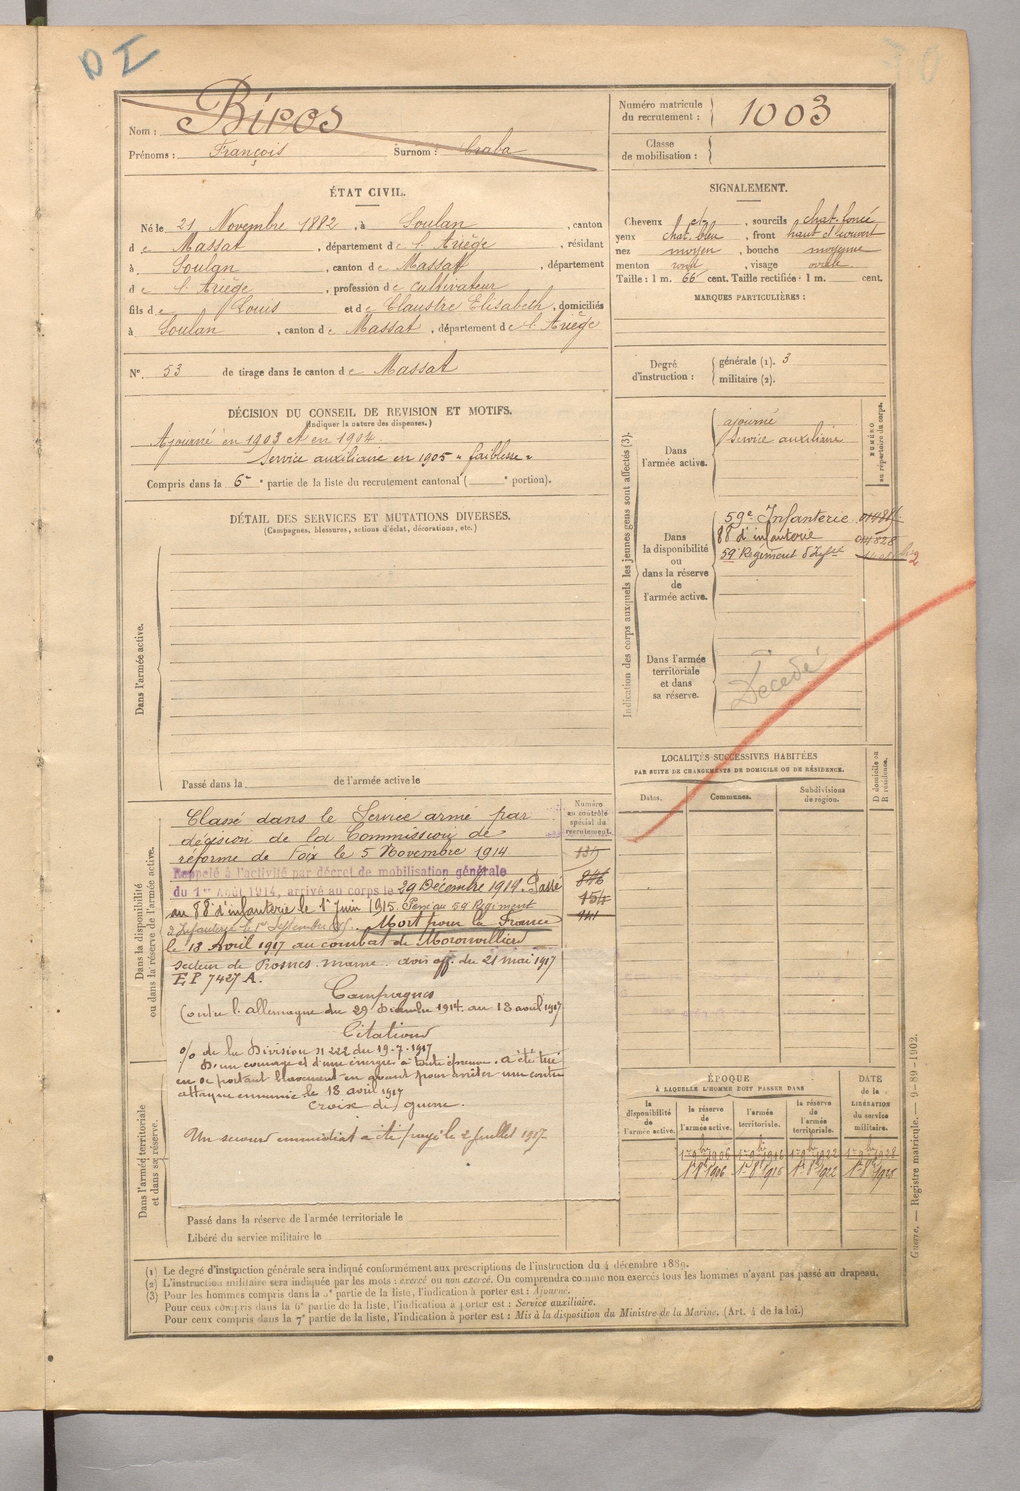 DI
Nom : Biros
Prénoms : François Surnom : Craba
Numéro matricule du recrutement : 1003
Classe de mobilisation :
ÉTAT CIVIL.
Né le 21 Novembre 1882, à Soulan, canton
de Massat, département de l'Ariège, résidant
à Soulan, canton de Massat, département
de l'Ariège, profession de cultivateur
fils de Louis et de Claustre Elisabeth, domiciliés
à Soulan, canton de Massat, département de l'Ariège
N° 53 de tirage dans le canton de Massat
SIGNALEMENT.
Cheveux , sourcils chat. foncé
yeux chat. bleu, front haut découvert
nez moyen, bouche moyenne
menton rond, visage ovale
Taille : 1 m. 66 cent. Taille rectifiée : 1 m. cent.
MARQUES PARTICULIÈRES :
Degré d'instruction : générale (1). 3
militaire (2).
DÉCISION DU CONSEIL DE REVISION ET MOTIFS.
(Indiquer la nature des dispenses.)
Ajourné en 1903 et en 1904.
Service auxiliaire en 1905 « faiblesse »
Compris dans la 6e partie de la liste du recrutement cantonal ( e portion).
DÉTAIL DES SERVICES ET MUTATIONS DIVERSES.
(Campagnes, blessures, actions d'éclat, décorations, etc.)
Dans l'armée active.
Passé dans la de l'armée active le
Indication des corps auxquels les jeunes gens sont affectés (3).
NUMÉRO au répertoire du corps.
Dans l'armée active.
ajourné
Service auxiliaire
Dans la disponibilité ou dans la réserve de l'armée active.
59e Infanterie
88e d'infanterie 014828
59e Régiment d'Infie
Dans l'armée territoriale et dans sa réserve.
Décédé
LOCALITÉS SUCCESSIVES HABITÉES
PAR SUITE DE CHANGEMENTS DE DOMICILE OU DE RÉSIDENCE.
Dates. Communes. Subdivisions de région. D domicile ou R résidence.
Dans la disponibilité ou dans la réserve de l'armée active.
Numéro au contrôle spécial du recrutement.
Classé dans le Service armé par
décision de la Commission de
réforme de Foix le 5 Novembre 1914
Rappelé à l'activité par décret de mobilisation générale
du 1er Août 1914, arrivé au corps le 29 Décembre 1914. Passé 846
au 88e d'infanterie le 1er Juin 1915. Passé au 59e Régiment 154
d'Infanterie le 1er Septembre . Mort pour la France
le 18 Avril 1917 au combat de Moronvilliers
secteur de Prosnes Marne avis off. du 21 mai 1917
EP 7427 A.
Campagnes
Contre l'allemagne du 29 Décembre 1914 au 18 avril 1917
Citations
% de la Division n 222 du 19-7-1917
D'un courage et d'une énergie à toute épreuve. a été tué
en se portant bravement en avant pour arrêter une contre
attaque ennemie le 18 avril 1917
croix de guerre.
Un secours immédiat a été payé le 2 juillet 1917
Dans l'armée territoriale et dans sa réserve.
Passé dans la réserve de l'armée territoriale le
Libéré du service militaire le
ÉPOQUE
À LAQUELLE L'HOMME DOIT PASSER DANS
la disponibilité de l'armée active. la réserve de l'armée active. l'armée territoriale. la réserve de l'armée territoriale.
DATE de la LIBÉRATION du service militaire.
1er 9bre 1906 1er 9bre 1916 1er 9bre 1922 1er 9bre 1928
(1) Le degré d'instruction générale sera indiqué conformément aux prescriptions de l'instruction du 4 décembre 1889.
(2) L'instruction militaire sera indiquée par les mots : exercé ou non exercé. On comprendra comme non exercés tous les hommes n'ayant pas passé au drapeau.
(3) Pour les hommes compris dans la 5e partie de la liste, l'indication à porter est : Ajourné.
Pour ceux compris dans la 6e partie de la liste, l'indication à porter est : Service auxiliaire.
Pour ceux compris dans la 7e partie de la liste, l'indication à porter est : Mis à la disposition du Ministre de la Marine. (Art. 4 de la loi.)
Guerre. — Registre matricule. — 9-89-1902.